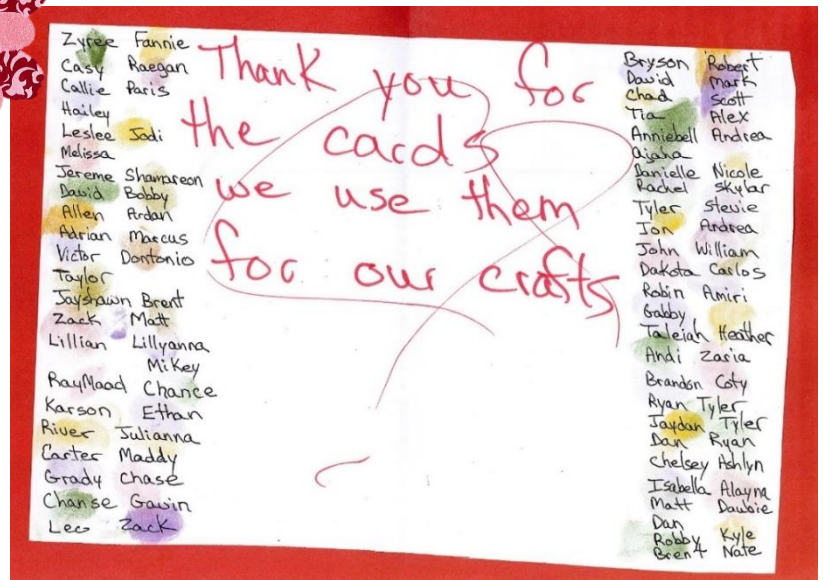 Zyree Fannie
Casy Raegan
Callie Paris
Hailey
Leslee Jodi
Melissa
Jereme Shamareon
David Bobby
Allen Ardan
Adrian Marcus
Victor Dontonio
Taylor
Jayshawn Brent
Zack Matt
Lillian Lillyanna
Mikey
RayMaad Chance
Karson Ethan
River Julianna
Carter Maddy
Grady Chase
Chanse Gavin
Leo Zack
Thank you for
the cards
we use them
for our crafts
Bryson Robert
David Mark
Chad Scott
Tia Alex
Anniebell Andrea
Ajaha
Danielle Nicole
Rachel Skylar
Tyler Stevie
Jon Andrea
John William
Dakota Carlos
Robin Amiri
Gabby
Taleiah Heather
Andi Zaria
Brandon Coty
Ryan Tyler
Jaydan Tyler
Dan Ryan
Chelsey Ashlyn
Isabella Alayna
Matt Dawbie
Dan
Robby Kyle
Brent Nate